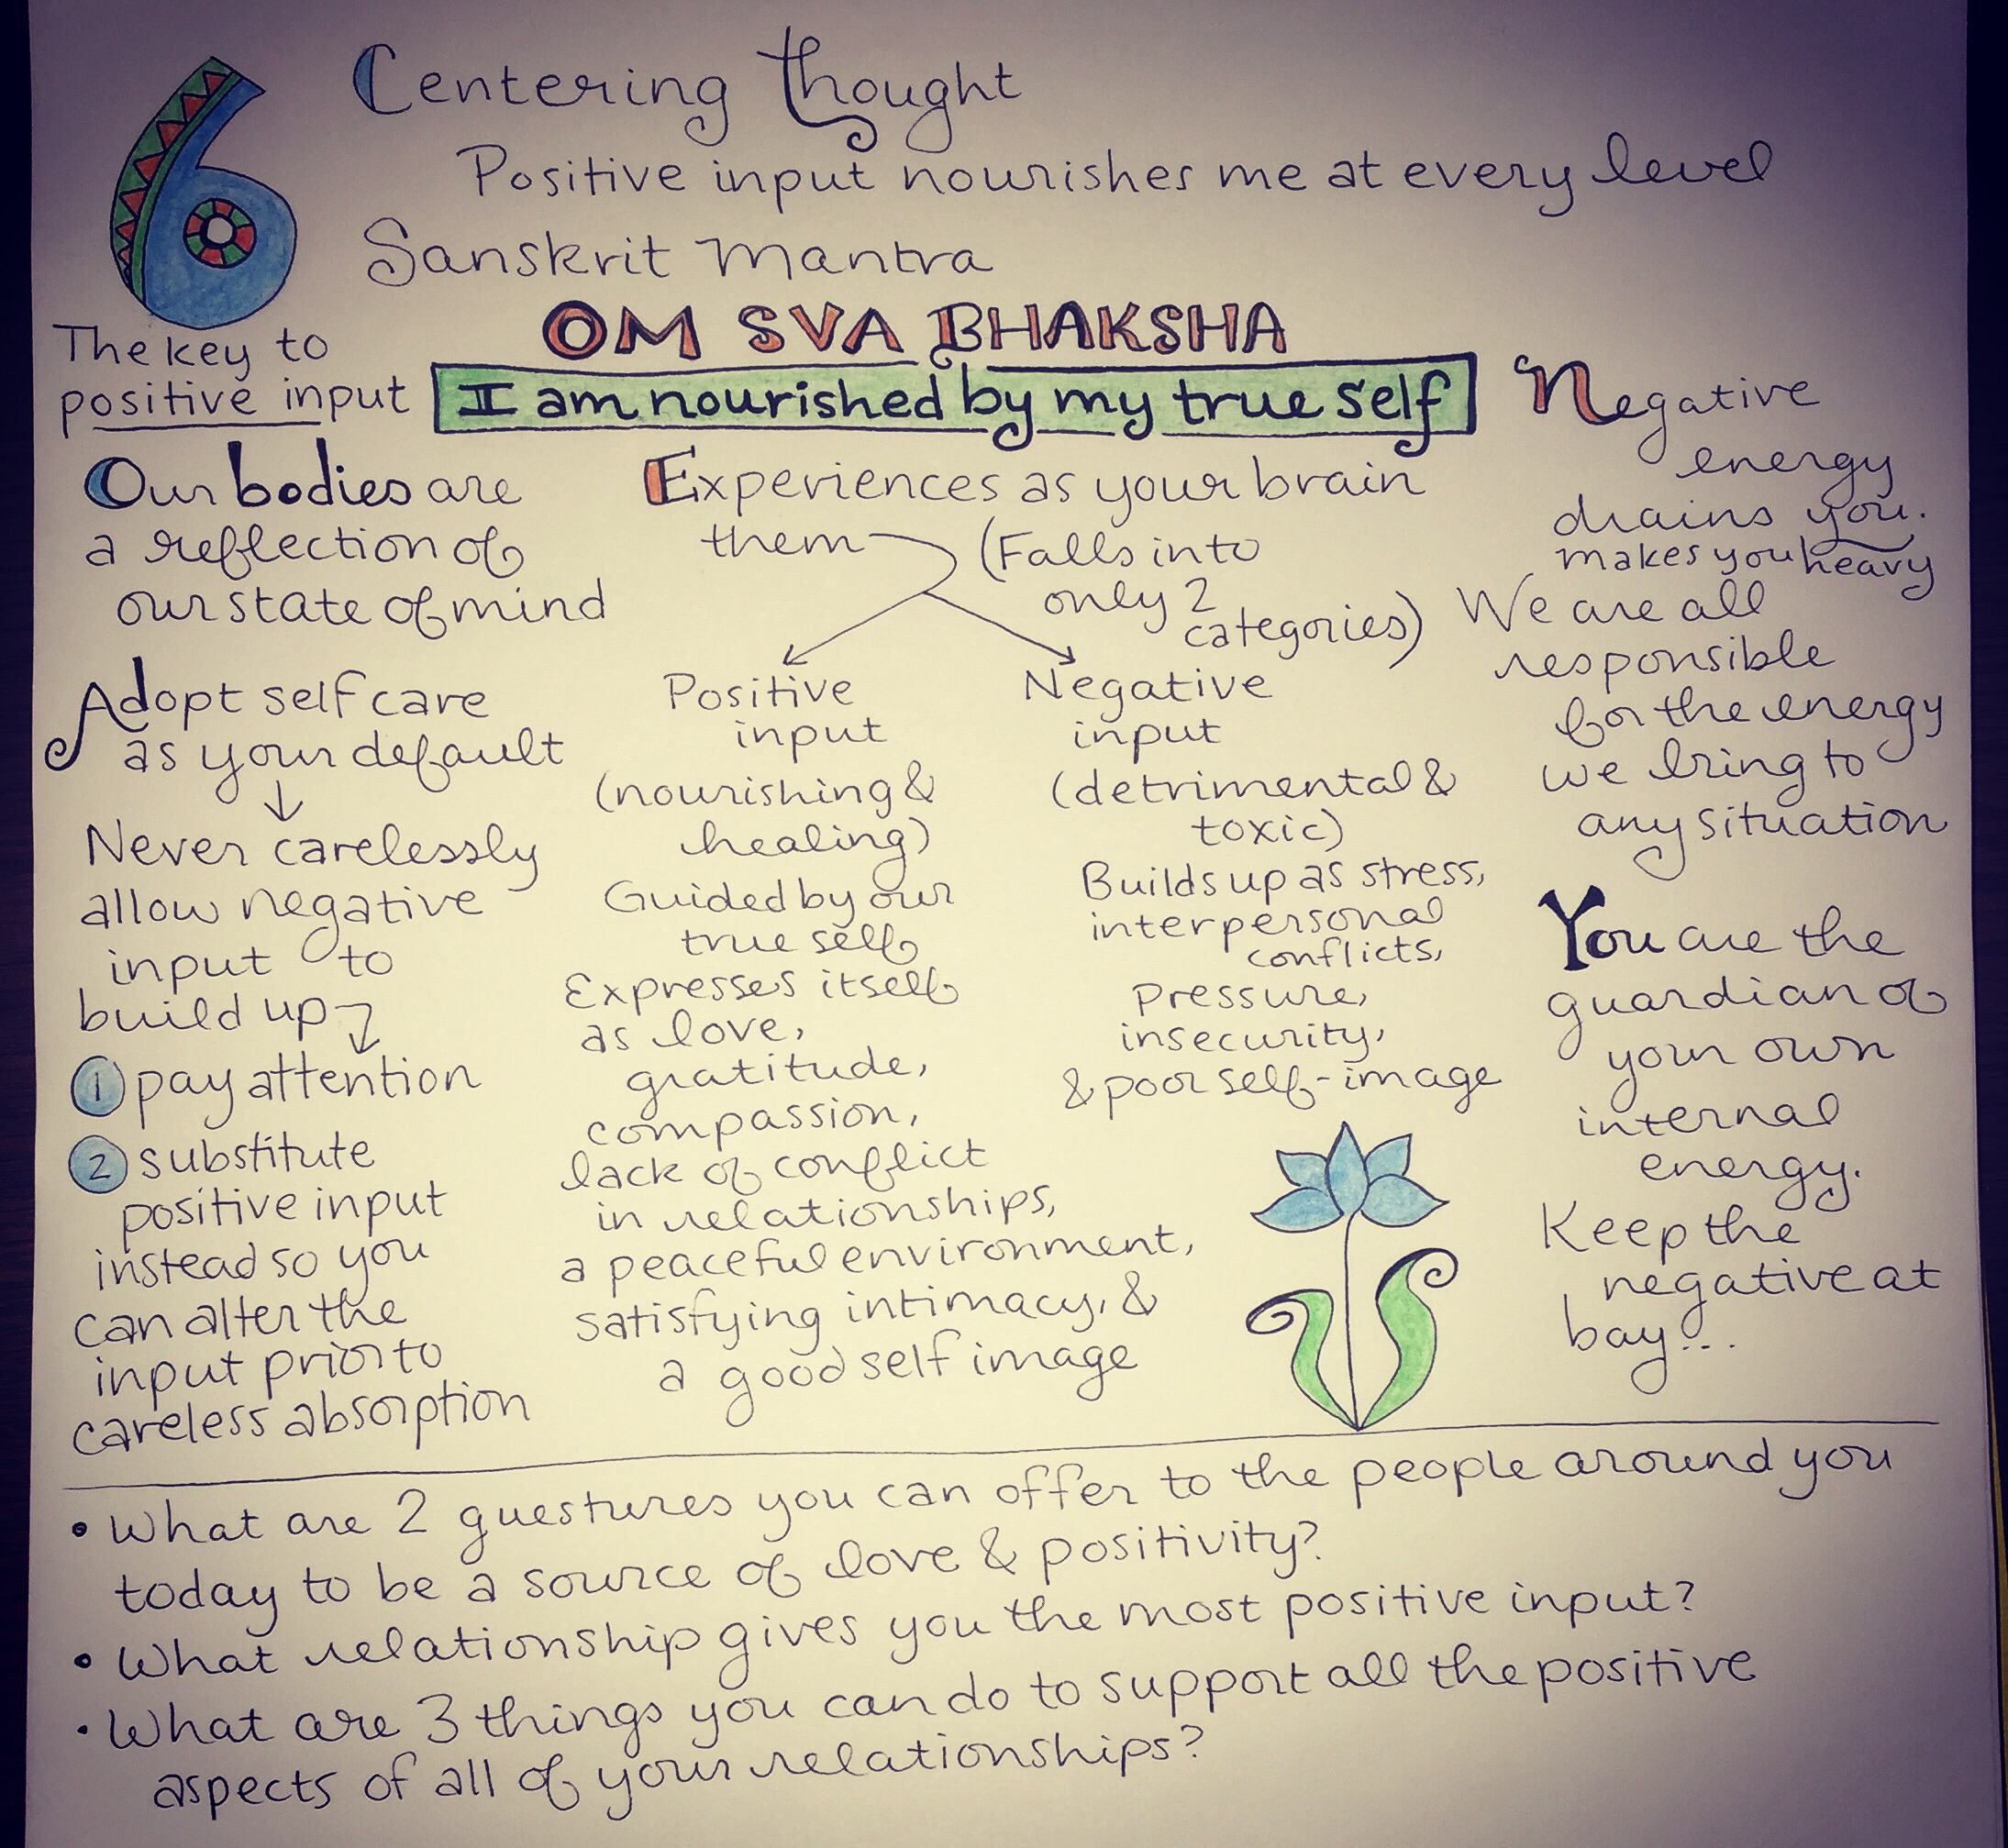 6
Centering Thought
Positive input nourishes me at every level
Sanskrit Mantra
OM SVA BHAKSHA
I am nourished by my true self
The key to
positive input
Our bodies are
a reflection of
our state of mind
Adopt self care
as your default
Never carelessly
allow negative
input to
build up
1 pay attention
2 substitute
positive input
instead so you
can alter the
input prior to
careless absorption
Experiences as your brain
them
(Falls into
only 2
categories)
Positive
input
(nourishing &
healing)
Guided by our
true self
Expresses itself
as love,
gratitude,
compassion,
lack of conflict
in relationships,
a peaceful environment,
satisfying intimacy, &
a good self image
Negative
input
(detrimental &
toxic)
Builds up as stress,
interpersonal
conflicts,
pressure,
insecurity,
& poor self-image
Negative
energy
drains you.
makes you heavy
We are all
responsible
for the energy
we bring to
any situation
You are the
guardian of
your own
internal
energy.
Keep the
negative at
bay...
• What are 2 guestures you can offer to the people around you
today to be a source of love & positivity?
• What relationship gives you the most positive input?
• What are 3 things you can do to support all the positive
aspects of all of your relationships?